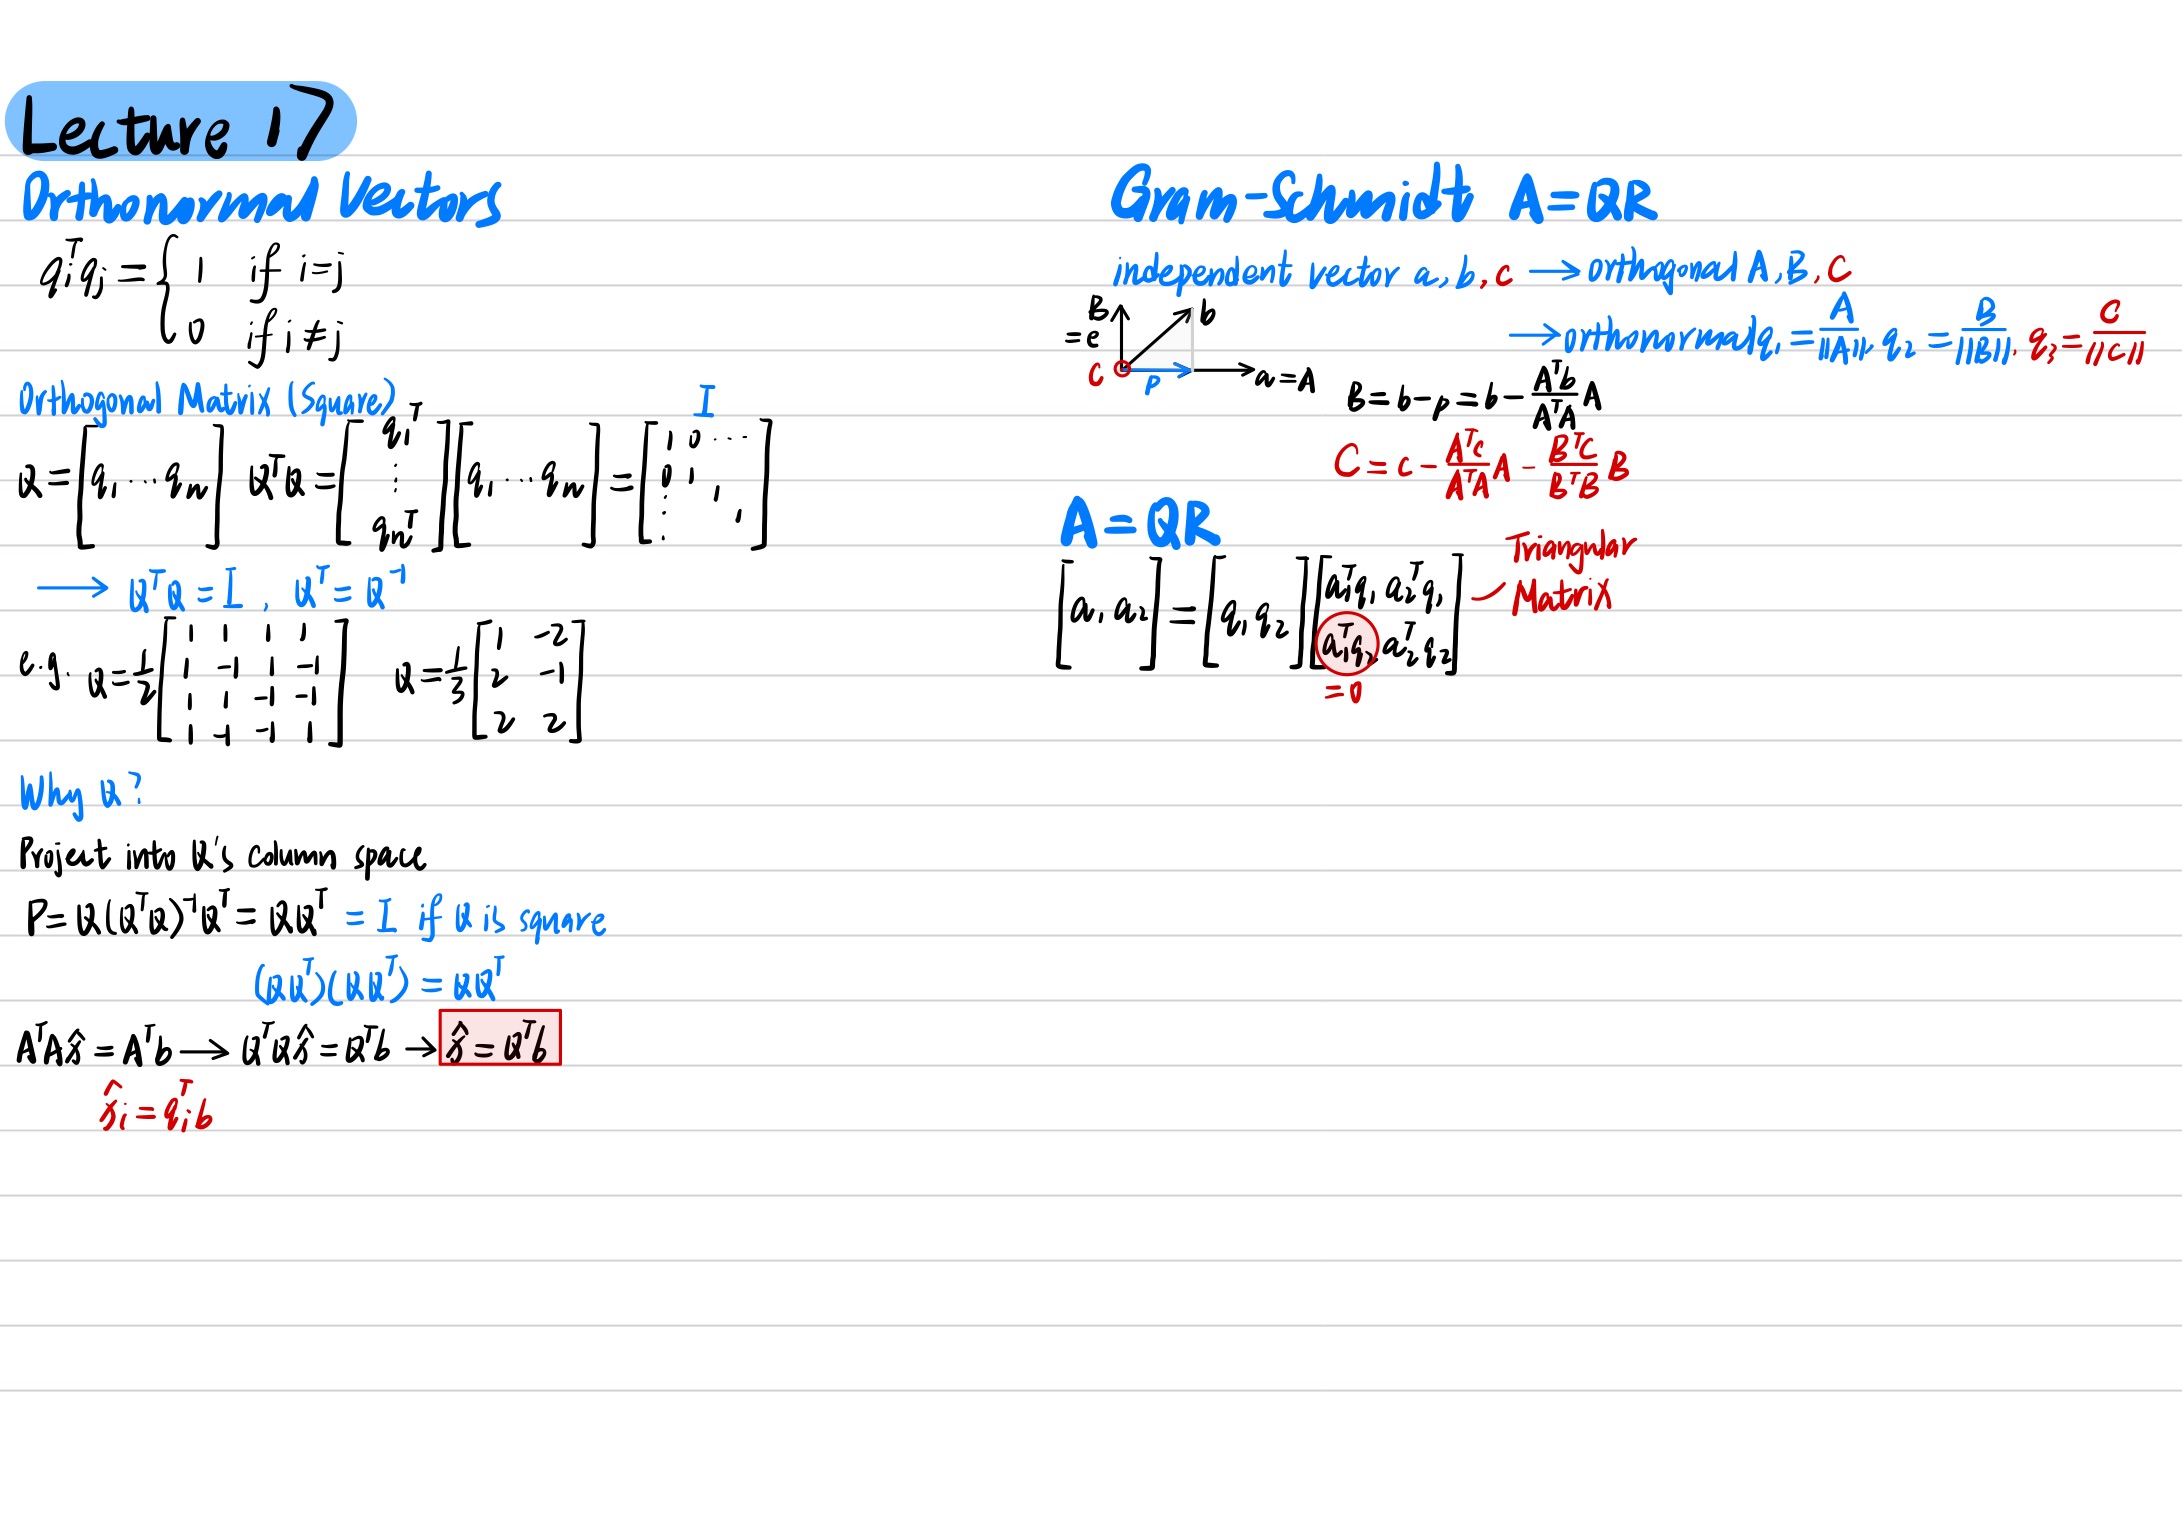 Lecture 17
Orthonormal Vectors
qᵢᵀqⱼ = { 1 if i=j
0 if i≠j
Orthogonal Matrix (Square)
Q = [q₁ ⋯ qₙ] QᵀQ = [q₁ᵀ ⋮ qₙᵀ] [q₁ ⋯ qₙ] = [1 0 ⋯ 0 1 ⋮ 1 1] I
→ QᵀQ = I, Qᵀ = Q⁻¹
e.g. Q = 1/2 [1 1 1 1; 1 -1 1 -1; 1 1 -1 -1; 1 -1 -1 1] Q = 1/3 [1 -2; 2 -1; 2 2]
Why Q?
Project into Q's column space
P = Q(QᵀQ)⁻¹Qᵀ = QQᵀ = I if Q is square
(QQᵀ)(QQᵀ) = QQᵀ
AᵀAx̂ = Aᵀb → QᵀQx̂ = Qᵀb → x̂ = Qᵀb
x̂ᵢ = qᵢᵀb
Gram-Schmidt A=QR
independent vector a, b, c → orthogonal A, B, C
→ orthonormal q₁ = A/||A||, q₂ = B/||B||, q₃ = C/||C||
B = e
b
C
p
a = A
B = b - p = b - Aᵀb/AᵀA A
C = c - Aᵀc/AᵀA A - BᵀC/BᵀB B
A = QR
[a₁ a₂] = [q₁ q₂] [a₁ᵀq₁ a₂ᵀq₁; a₁ᵀq₂ a₂ᵀq₂]
=0
Triangular
Matrix